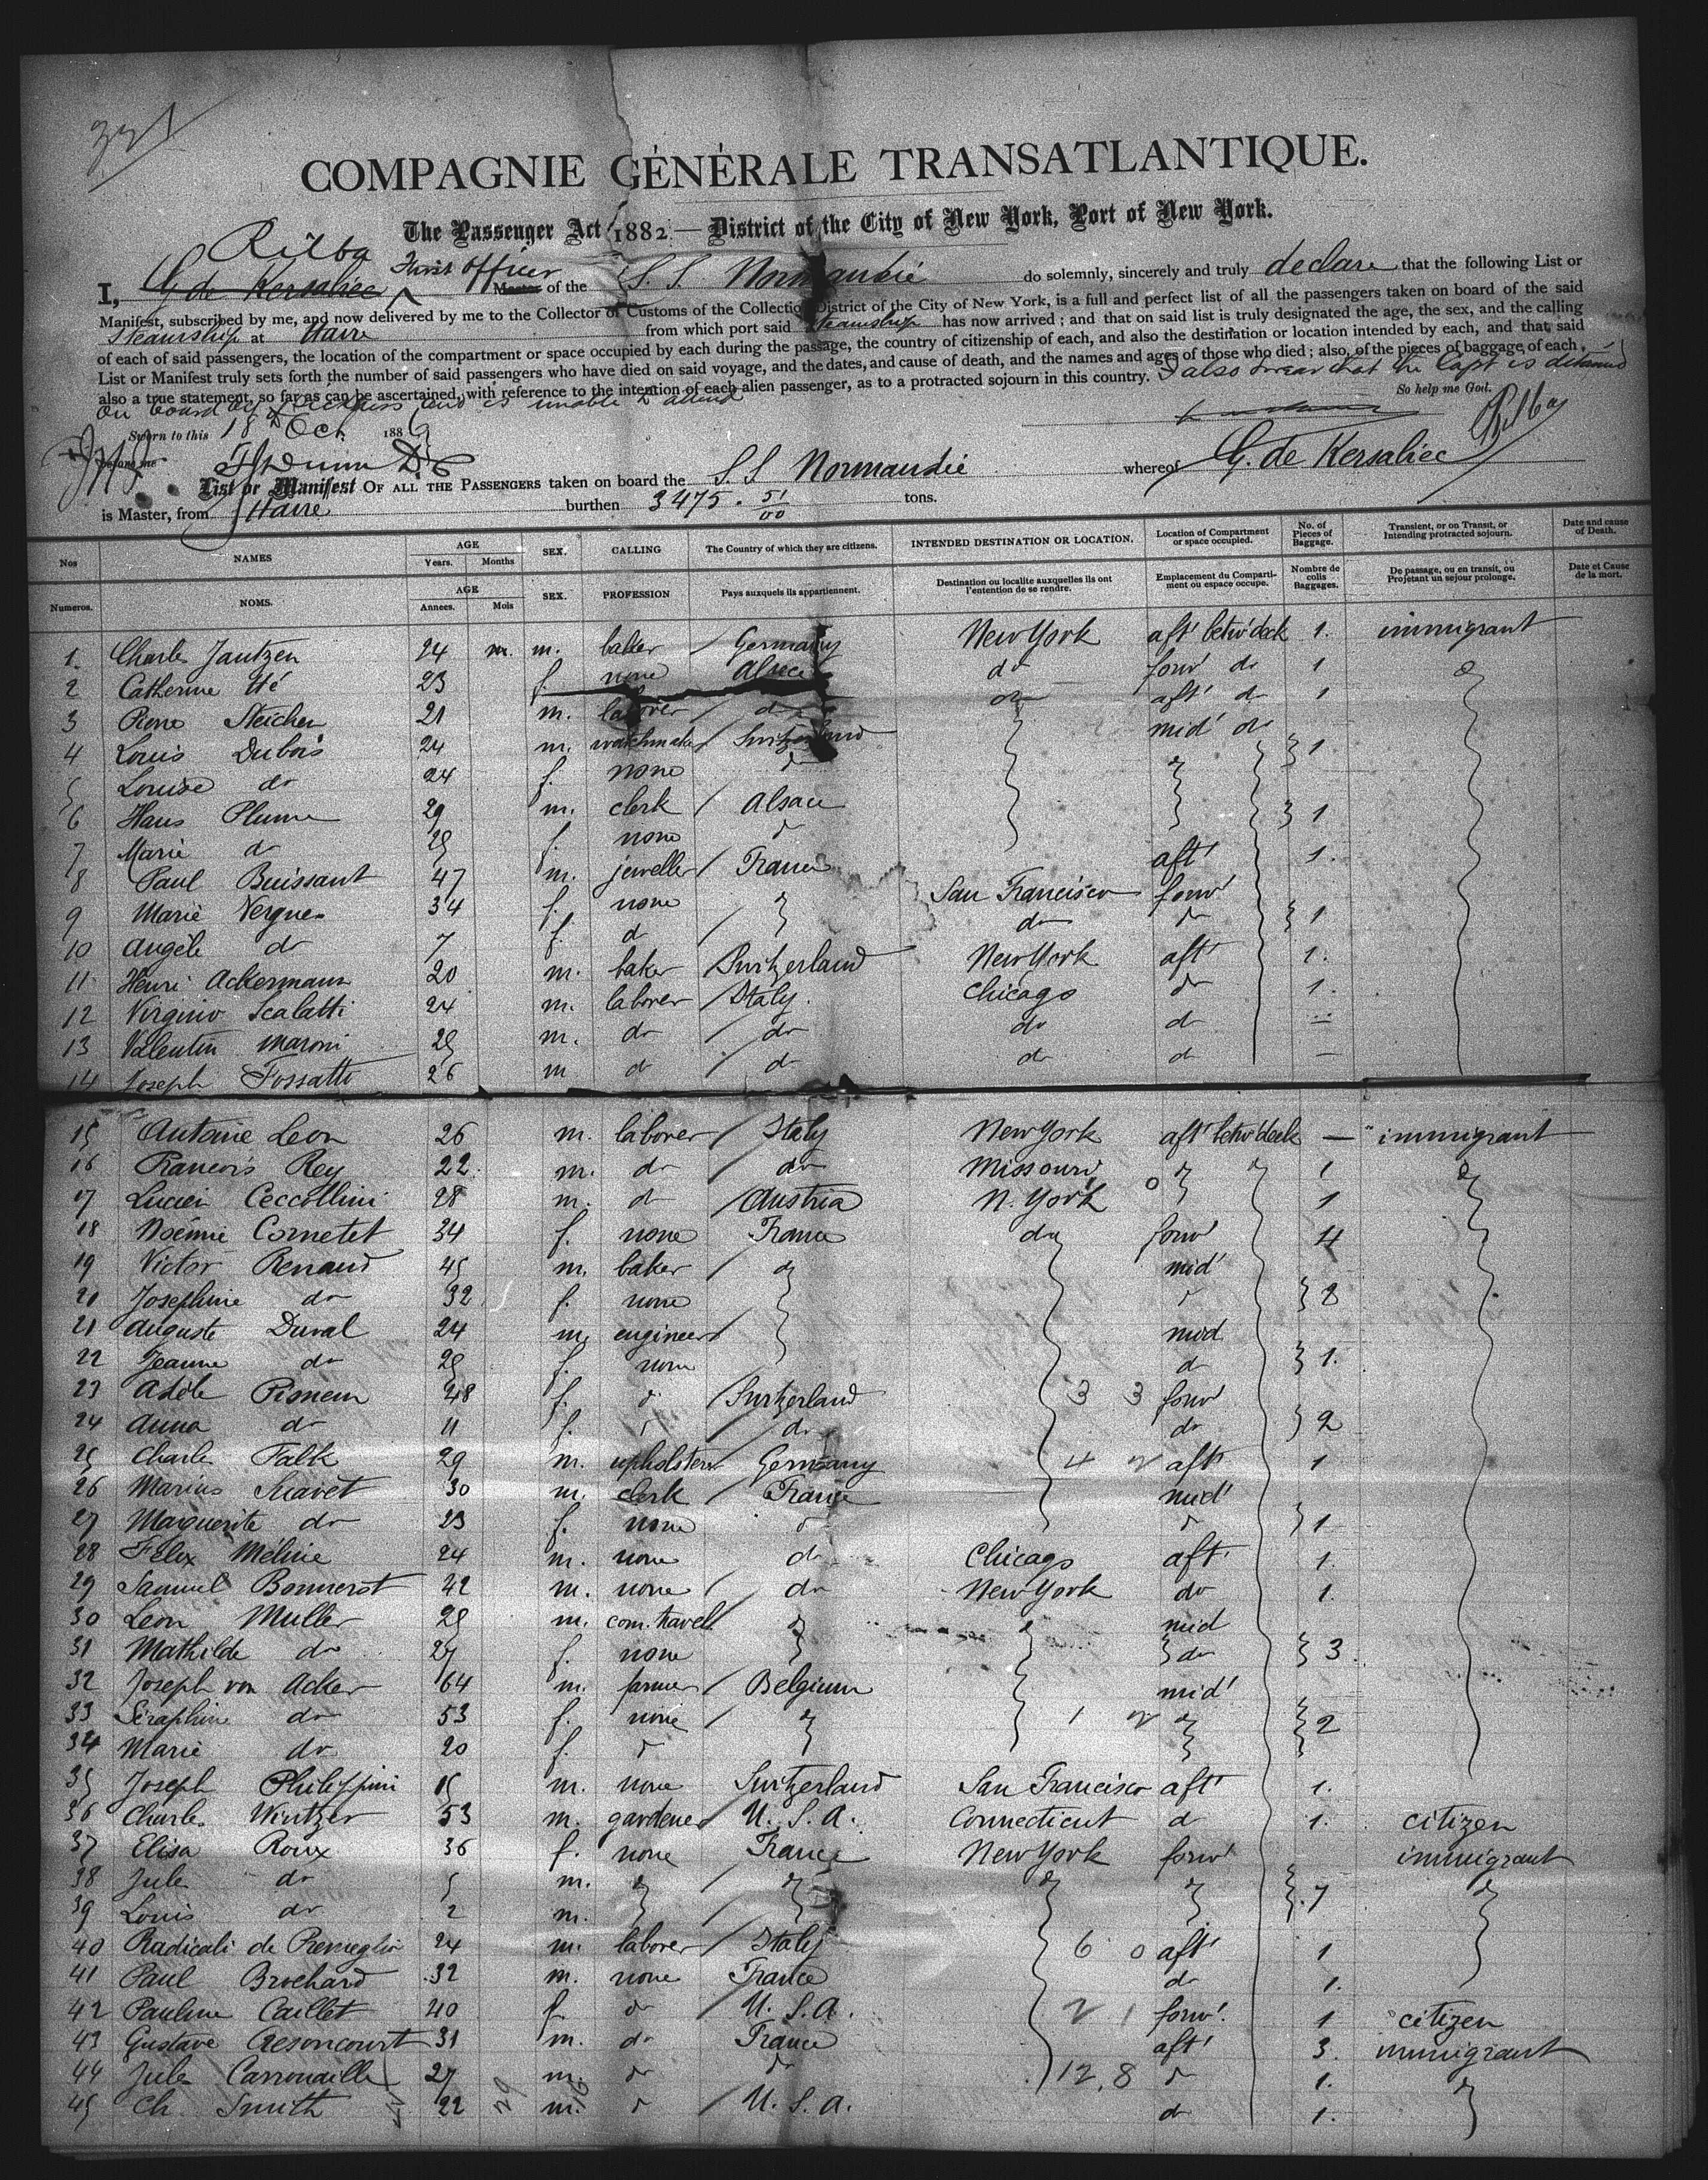 331
COMPAGNIE GÉNÉRALE TRANSATLANTIQUE.
The Passenger Act 1882 — District of the City of New York, Port of New York.
Rilba First officer
I, G. de Kersabiec Master of the S. S. Normandie do solemnly, sincerely and truly declare that the following List or
Manifest, subscribed by me, and now delivered by me to the Collector of Customs of the Collection District of the City of New York, is a full and perfect list of all the passengers taken on board of the said
Steamship at Havre from which port said Steamship has now arrived; and that on said list is truly designated the age, the sex, and the calling
of each of said passengers, the location of the compartment or space occupied by each during the passage, the country of citizenship of each, and also the destination or location intended by each, and that said
List or Manifest truly sets forth the number of said passengers who have died on said voyage, and the dates, and cause of death, and the names and ages of those who died; also, of the pieces of baggage of each,
also a true statement, so far as can be ascertained, with reference to the intention of each alien passenger, as to a protracted sojourn in this country. I also swear that the Capt is detained
on board by sickness and is unable to attend So help me God.
Sworn to this 18 Oct 1886 Rilba
before me
List or Manifest OF ALL THE PASSENGERS taken on board the S. S Normandie whereof G. de Kersabiec
is Master, from Havre burthen 3475 . 51/00 tons.
Nos NAMES AGE Years. Months SEX. CALLING The Country of which they are citizens. INTENDED DESTINATION OR LOCATION. Location of Compartment or space occupied. No. of Pieces of Baggage. Transient, or on Transit, or Intending protracted sojourn. Date and cause of Death.
Numeros. NOMS. AGE Annees. Mois SEX. PROFESSION Pays auxquels ils appartiennent. Destination ou localite auxquelles ils ont l'entention de se rendre. Emplacement du Comparti-ment ou espace occupe. Nombre de colis Baggages. De passage, ou en transit, ou Projetant un sejour prolonge. Date et Cause de la mort.
1. Charles Jautzen 24 m. m. baker / Germany New York aft' betw' deck 1. immigrant
2 Catherine Hé 23 f. none Alsace do forw' do 1 do
3 Pierre Steichen 21 m. laborer / do do aft' do 1
4 Louis Dubois 24 m. watchmaker / Switzerland mid' do
5 Louise do 24 f. none do do 1
6 Hans Plume 29 m. clerk / Alsace
7 Marie do 25 f. none do 1
8 Paul Buissant 47 m. jeweller / France aft' 1.
9 Marie Vergues 34 f. none do San Francisco forw'
10 Angèle do 7 f. do / do do 1
11. Henri Ackermann 20 m. baker / Switzerland New York aft' 1.
12 Virginio Scalatti 24 m. laborer / Italy. Chicago do 1.
13 Valentin Maroni 25 m. do / do do do —
14 Joseph Fossatti 26 m do / do do do —
15 Antoine Leon 26 m. laborer / Italy New York aft' betw' deck — immigrant
16 Francois Rey 22. m. do / do Missouri do 1 do
17 Lucien Ceccollini 28 m. do / Austria N. York 1
18 Noémie Cornetet 34 f. none France do forw' 4
19 Victor Renaud 45 m. baker / do mid'
20 Josephine do 32 f. none do 2
21 Auguste Duval 24 m. engineer / mid
22 Jeanne do 25 f. none do 1.
23 Adèle Pismeur 48 f. do / Switzerland 3 3 forw'
24 Anna do 11 f. do / do do 2
25 Charles Falk 29 m. upholsterer Germany 4 aft' 1
26 Marius Suavet 30 m. clerk / France mid'
27 Maguerite do 23 f. none do do 1
28 Felix Méline 24 m. none do Chicago aft' 1.
29 Samuel Bonnerot 42 m. none / do New York do 1.
30 Leon Muller 25 m. com. travell. do do mid
31 Mathilde do 27 f. none do 3.
32 Joseph von Acker 64 m. farmer / Belgium mid'
33 Séraphine do 53 f. none / do 1 do 2
34 Marie do 20 f. do
35 Joseph Philippini 15 m. none Switzerland San Francisco aft' 1.
36 Charles Wintzer 53 m. gardener / U. S. A. Connecticut do 1. citizen
37 Elisa Roux 36 f. none France New York forw' immigrant
38 Jules do 5 m. do / do do do 7 do
39 Louis do 2 m.
40 Radicali de Remeglio 24 m. laborer / Italy 6 0 aft' 1
41 Paul Brochard 32 m. none France do 1.
42 Pauline Caillet 40 f. do / U. S. A. 2 1 forw'. 1 citizen
43 Gustave Aesoncourt 31 m. do France aft' 3. immigrant
44 Jules Carronaille 27 m. do do 12, 8 do 1. do
45 Ch. Smith 22 29 m. 16 do / U. S. A. do 1.